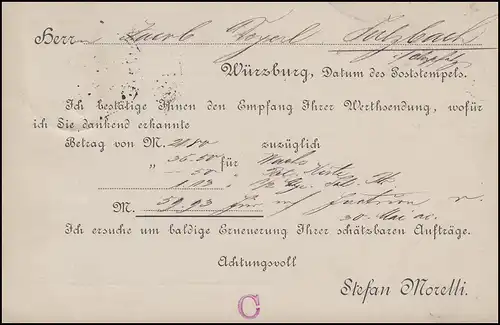 Herrn Jacob Sulzbach
Würzburg, Datum des Poststempels.
Ich bestätige Ihnen den Empfang Ihrer Werthsendung, wofür
ich Sie dankend erkannte
Betrag von M. 21.80 zuzüglich
" 36.50 für
- 50 " Kiste
1.13 "
M. 59.93 für
30. Mai ac.
Ich ersuche um baldige Erneuerung Ihrer schätzbaren Aufträge.
Achtungsvoll
Stefan Moretti.
C